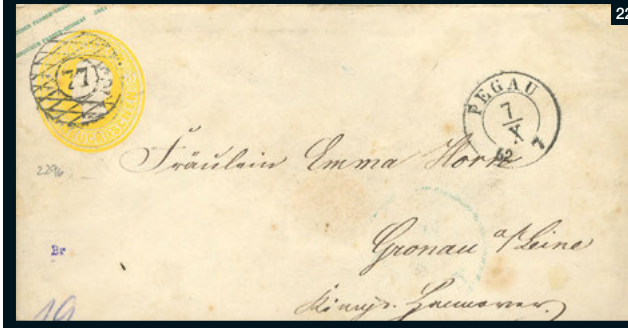 22
77
NEUGROSCHEN
PEGAU
7
X
62
7
2296
Fräulein Emma Horn
Gronau a/Leine
Königr. Hannover
Br
19